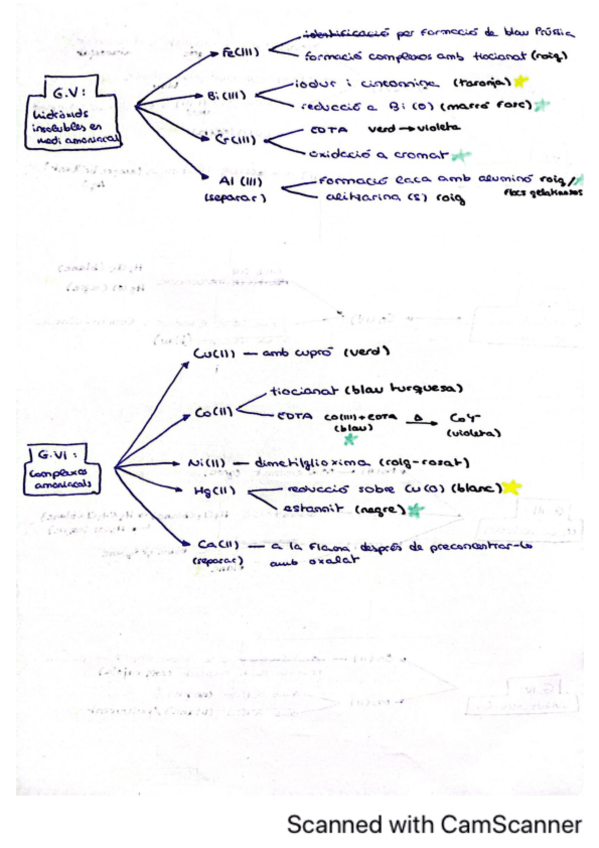 identificació per formació de blau Prússia
Fe(III)
formació complexos amb tiocianat (roig)
G.V:
hidròxids
insolubles en
medi amoniacal
Bi(III)
iodur i cinconnina (taronja)
reducció a Bi(0) (marró fosc)
Cr(III)
EDTA verd → violeta
oxidació a cromat
Al(III)
(separar)
Formació laca amb aluminó roig/
flocs gelatinosos
alitzarina (S) roig
Cu(II) — amb cupró (verd)
Co(II)
tiocianat (blau turquesa)
EDTA Co(III)+EDTA Δ → CoY⁻
(blau) (violeta)
G.VI:
Complexos
amoniacals
Ni(II) — dimetilglioxima (roig-rosat)
Hg(II)
reducció sobre Cu(0) (blanc)
estannit (negre)
Ca(II) — a la flama després de preconcentrar-lo
(separar) amb oxalat
Scanned with CamScanner